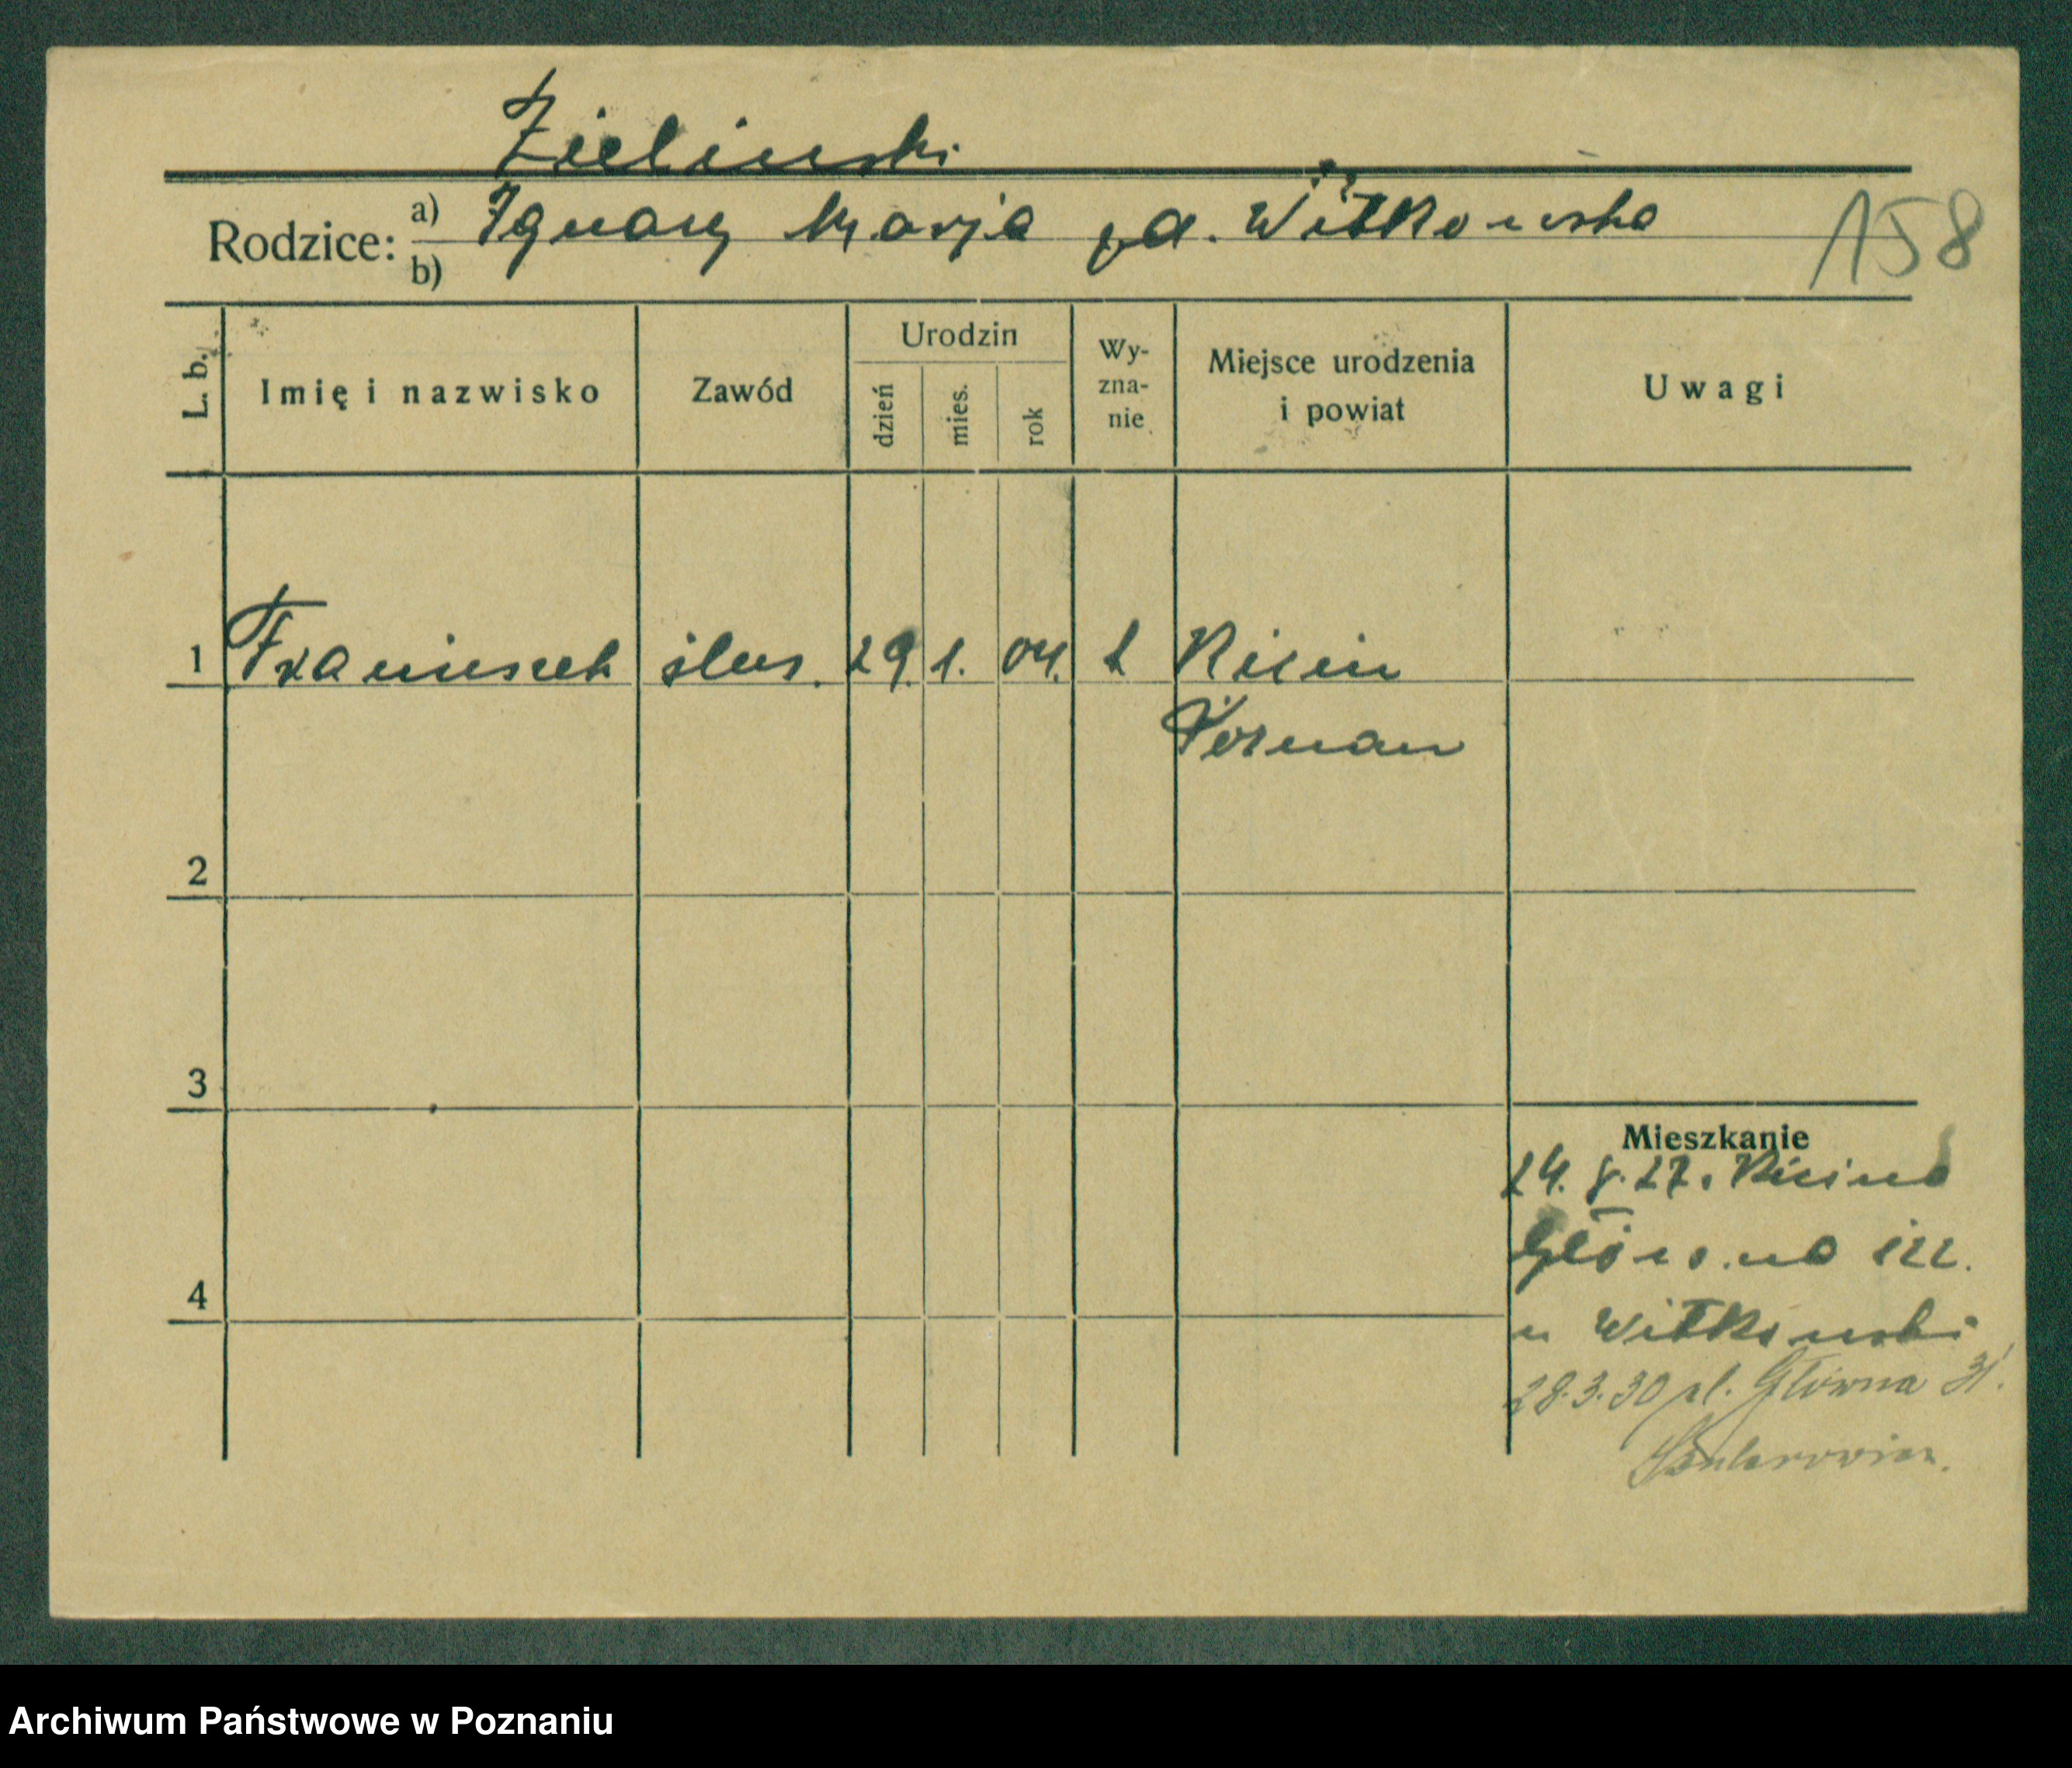 Zielinski
Rodzice: a) Ignacy Marja zd. Witkowska
b)
158
L. b.
Imię i nazwisko
Zawód
Urodzin
dzień
mies.
rok
Wy-
zna-
nie
Miejsce urodzenia
i powiat
Uwagi
1 Franciszek ślus. 29. 1. 04.
Poznan
2
3
Mieszkanie
24. 8. 27.
4
u Witkowski
28.3.30 Główna 31.
Archiwum Państwowe w Poznaniu